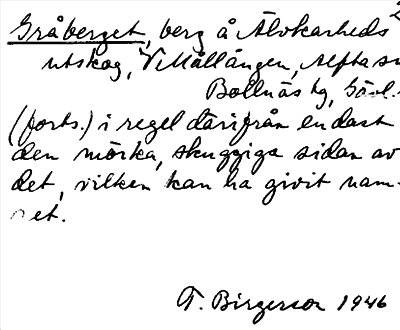 Gråberget, berg å Älvkarheds 2
utskog, V. Mållången, Alfta sn
Bollnäs tg, Gävl.
(forts.) i regel därifrån endast
den mörka, skuggiga sidan av
det, vilken kan ha givit nam-
et.
T. Birgerson 1946